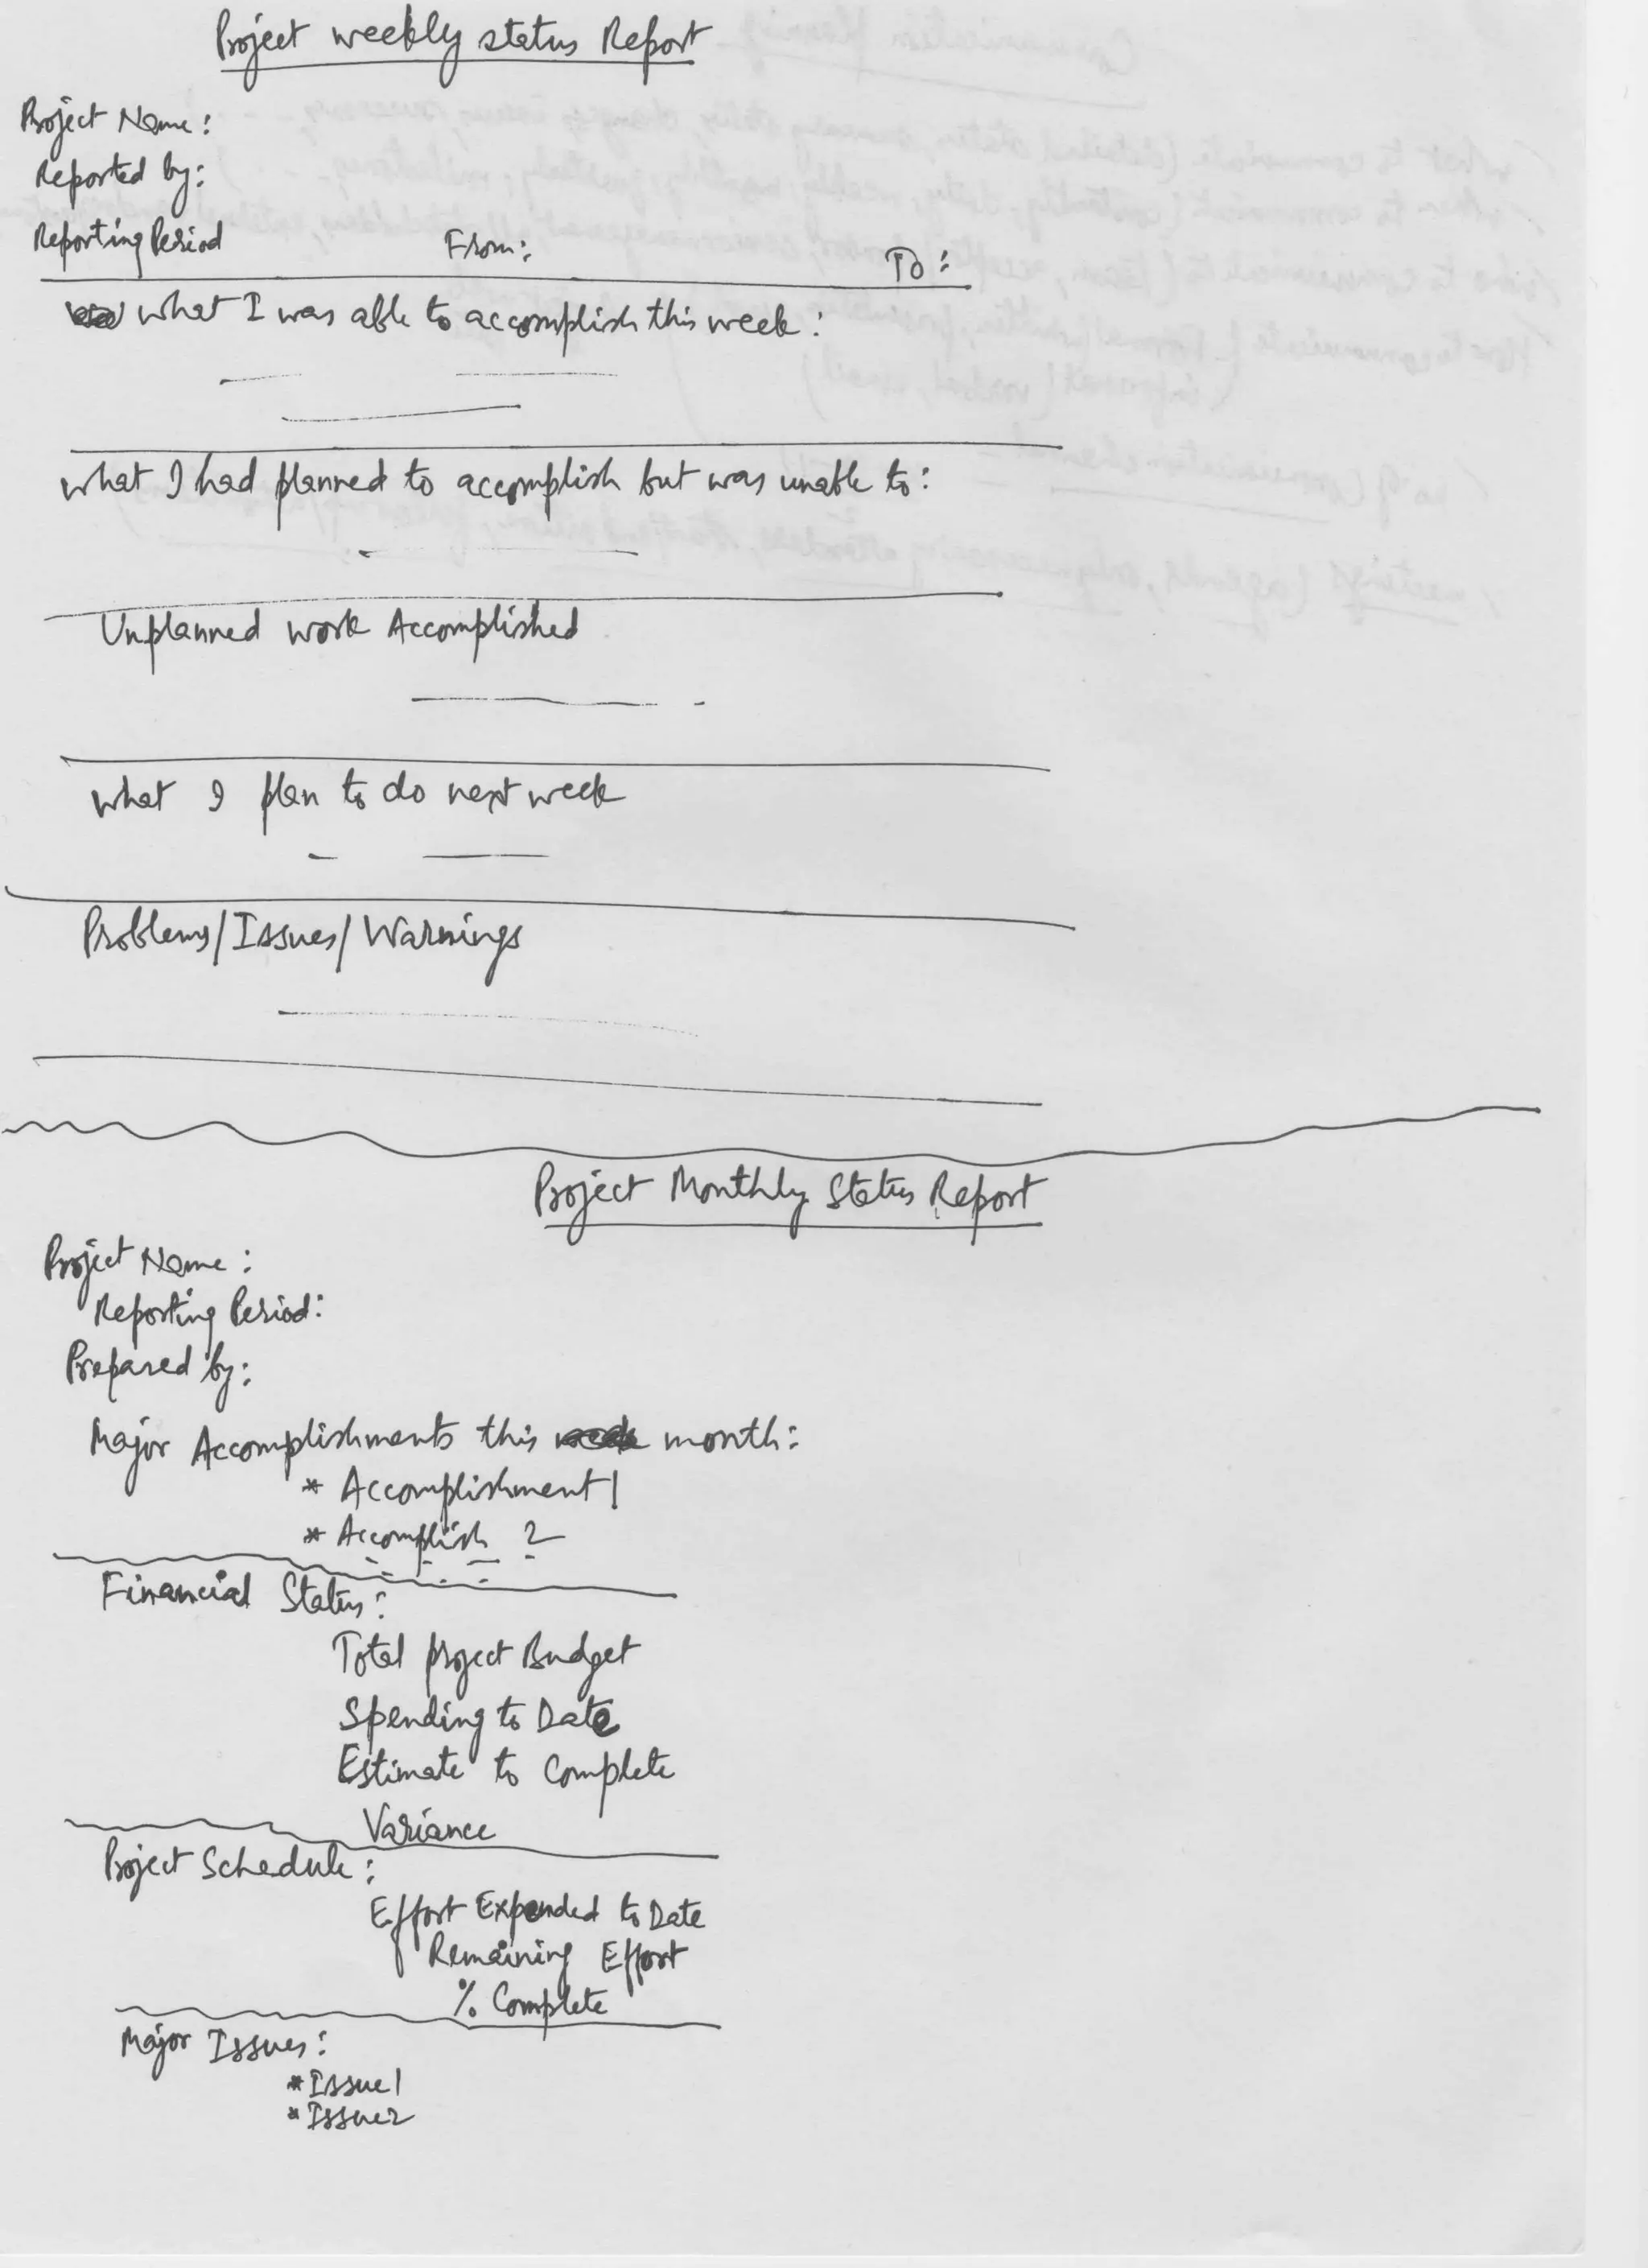 Project weekly status Report
Project Name :
Reported by:
Reporting Period From: To:
what I was able to accomplish this week :
what I had planned to accomplish but was unable to:
Unplanned work Accomplished
what I plan to do next week
Problems/Issues/Warnings
Project Monthly Status Report
Project Name :
Reporting Period:
Prepared by:
Major Accomplishments this month:
* Accomplishment 1
* Accomplish 2
Financial Status:
Total project Budget
Spending to Date
Estimate to Complete
Variance
Project Schedule :
Effort Expended to Date
Remaining Effort
% Complete
Major Issues:
* Issue 1
* Issue 2